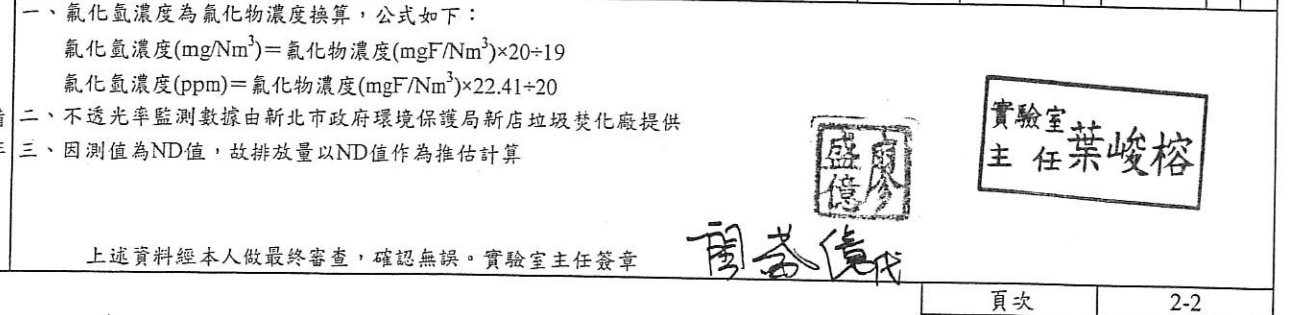 一、氟化氫濃度為氟化物濃度換算，公式如下：
氟化氫濃度(mg/Nm³)＝氟化物濃度(mgF/Nm³)×20÷19
氟化氫濃度(ppm)＝氟化物濃度(mgF/Nm³)×22.41÷20
二、不透光率監測數據由新北市政府環境保護局新店垃圾焚化廠提供
三、因測值為ND值，故排放量以ND值作為推估計算
實驗室
主 任 葉峻榕
廖盛億
上述資料經本人做最終審查，確認無誤。實驗室主任簽章 廖盛億代
頁次 2-2